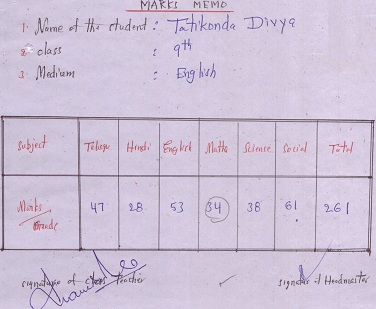 MARKS MEMO
1. Name of the student : Tatikonda Divya
2. class : 9th
3. Medium : English
Subject Telugu Hindi English Maths Science Social Total
Marks 47 28 53 34 38 61 261
Grande
signature of class Teacher signature of Headmaster